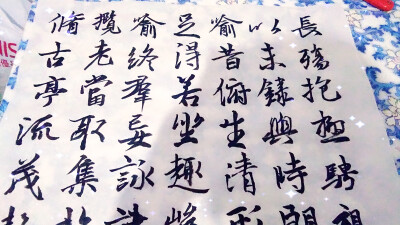 長殤抱極騁
以未錄興時
喻昔俯生清
足得若坐趣
喻終羣妄詠
攬老當取集
脩古亭流茂